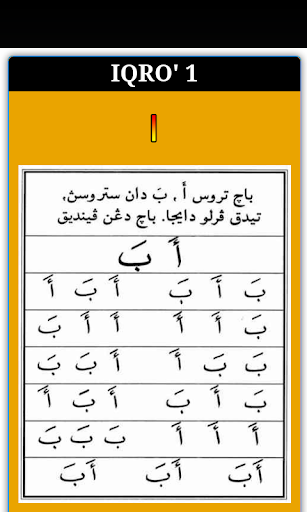 IQRO' 1
باچ تروس أَ , بَ دان ستروسڽ,
تيدق ڤرلو دايجا. باچ دڠن ڤينديق
أَ بَ
بَ أَ بَ أَ بَ أَ
بَ أَ أَ أَ أَ بَ
بَ بَ أَ أَ بَ بَ
بَ أَ بَ أَ بَ أَ
أَ أَ أَ بَ بَ بَ
أَبَ أَبَ أَبَ